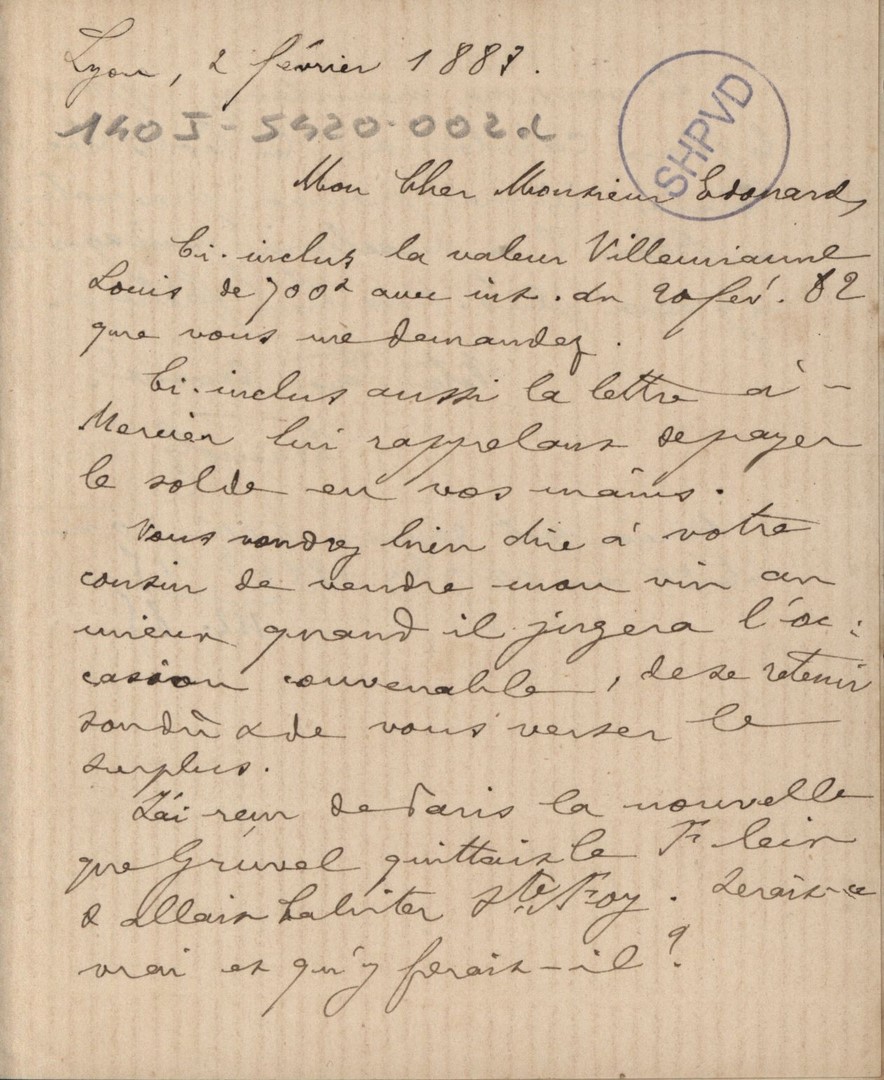 Lyon, 2 février 1887.
140J-5420-002d
SHPVD
Mon Cher Monsieur Edouard,
Ci-inclus la valeur Villemianne
Louis de 700f avec int. du 20 fév. 82
que vous me demandez.
Ci-inclus aussi la lettre à -
Mercier lui rappelant de payer
le solde en vos mains.
Vous voudrez bien dire à votre
cousin de vendre mon vin au
mieux quand il jugera l'oc:
casion convenable, de se retenir
son dû & de vous verser le
surplus.
J'ai reçu de Paris la nouvelle
que Gruvel quittait le Fleix
& allait habiter Ste Foy. Serait-ce
vrai et qu'y ferait-il?